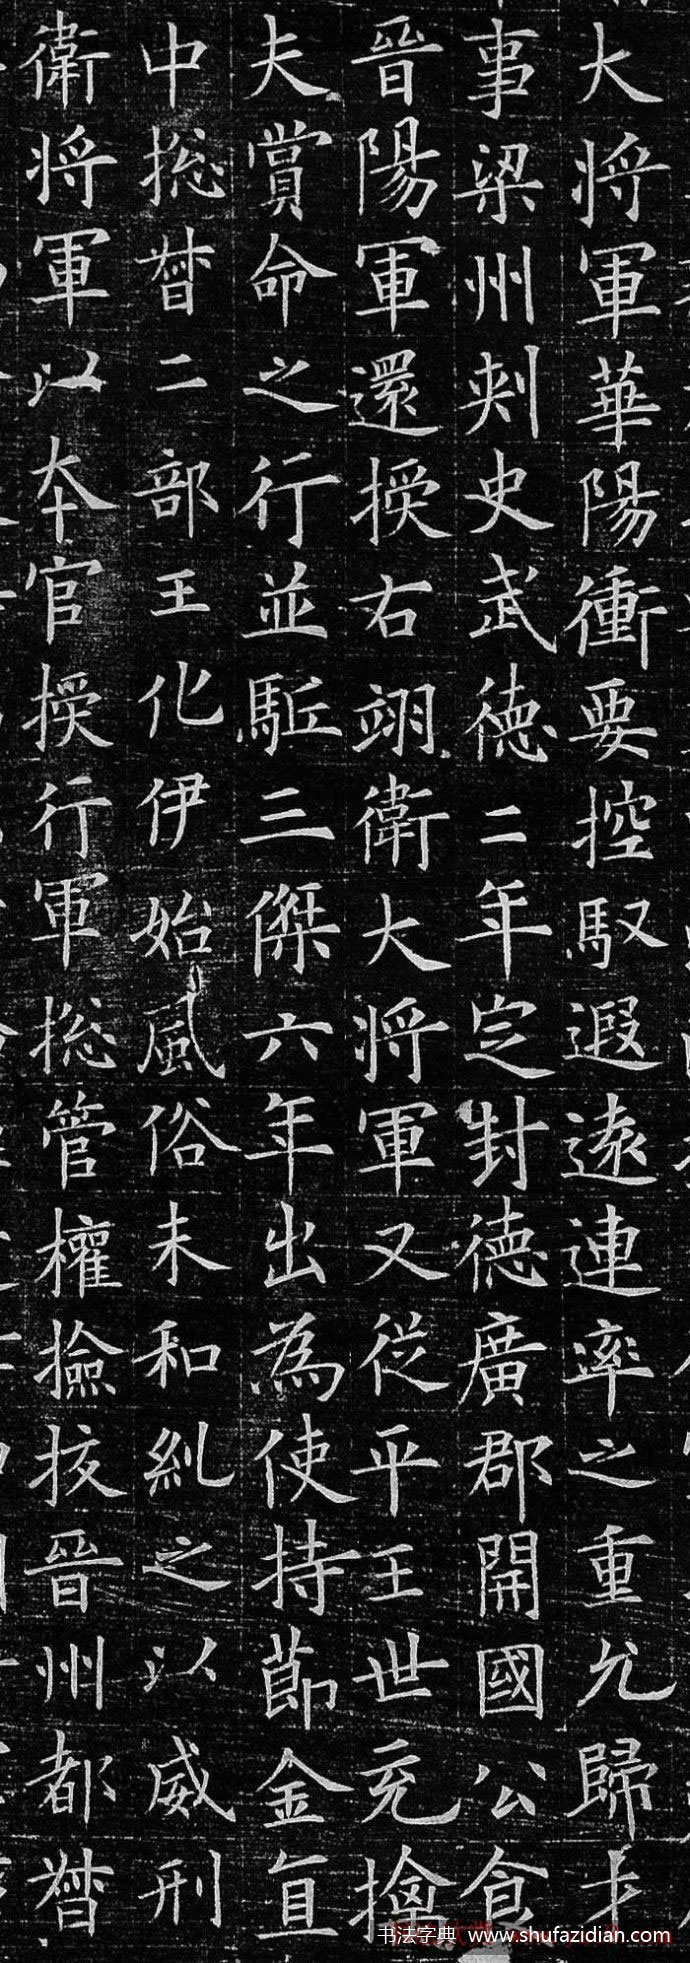 大将軍華陽衝要控馭遐遠連率之重允歸才
事梁州刾史武德二年定封德廣郡開國公食
晉陽軍還授右翊衛大将軍又従平王世充擒
夫賞命之行並駈三傑六年出為使持節金直
中捴督二部王化伊始風俗未和糺之以威刑
衛将軍以夲官授行軍捴管權撿挍晉州都督
书法字典 www.shufazidian.com